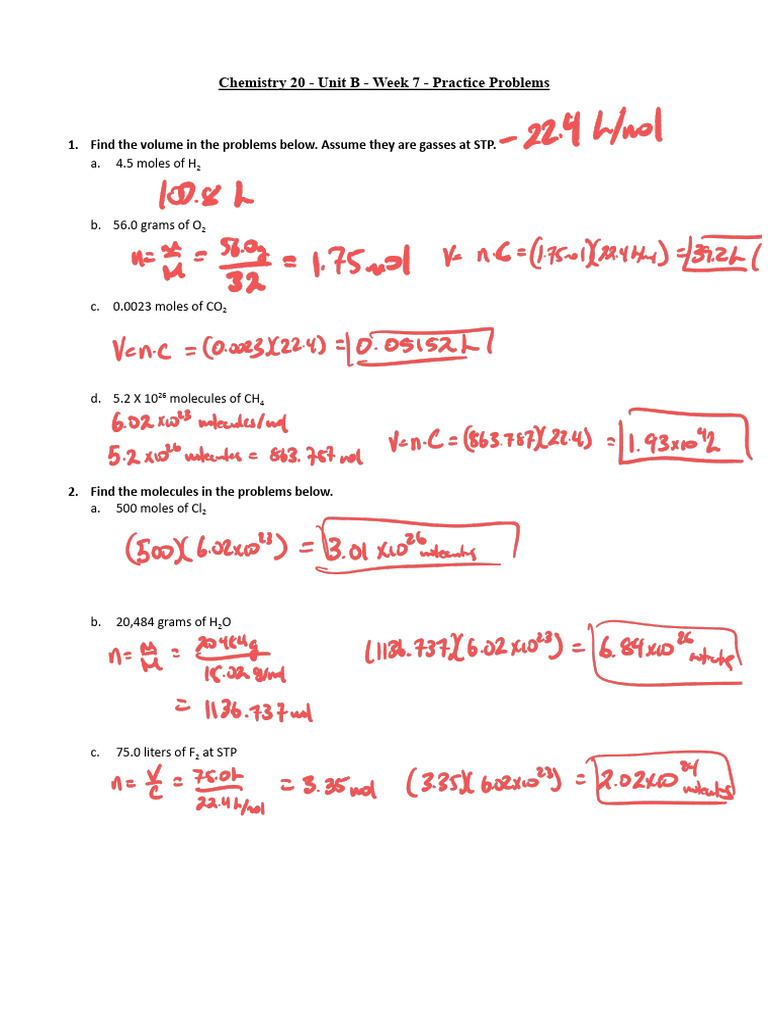 Chemistry 20 - Unit B - Week 7 - Practice Problems
1. Find the volume in the problems below. Assume they are gasses at STP. - 22.4 L/mol
a. 4.5 moles of H₂
100.8 L
b. 56.0 grams of O₂
n = m/M = 56.0g/32 = 1.75 mol V = n·C = (1.75mol)(22.4 L/mol) = 39.2L
c. 0.0023 moles of CO₂
V = n·C = (0.0023)(22.4) = 0.05152 L
d. 5.2 X 10²⁶ molecules of CH₄
6.02 x10²³ molecules/mol
5.2 x10²⁶ molecules = 863.787 mol V = n·C = (863.787)(22.4) = 1.93x10⁴L
2. Find the molecules in the problems below.
a. 500 moles of Cl₂
(500)(6.02x10²³) = 3.01 x10²⁶ molecules
b. 20,484 grams of H₂O
n = m/M = 20484g/18.02 g/mol (1136.737)(6.02x10²³) = 6.84x10²⁶ molecules
= 1136.737 mol
c. 75.0 liters of F₂ at STP
n = V/C = 75.0L/22.4 L/mol = 3.35 mol (3.35)(6.02x10²³) = 2.02x10²⁴ molecules